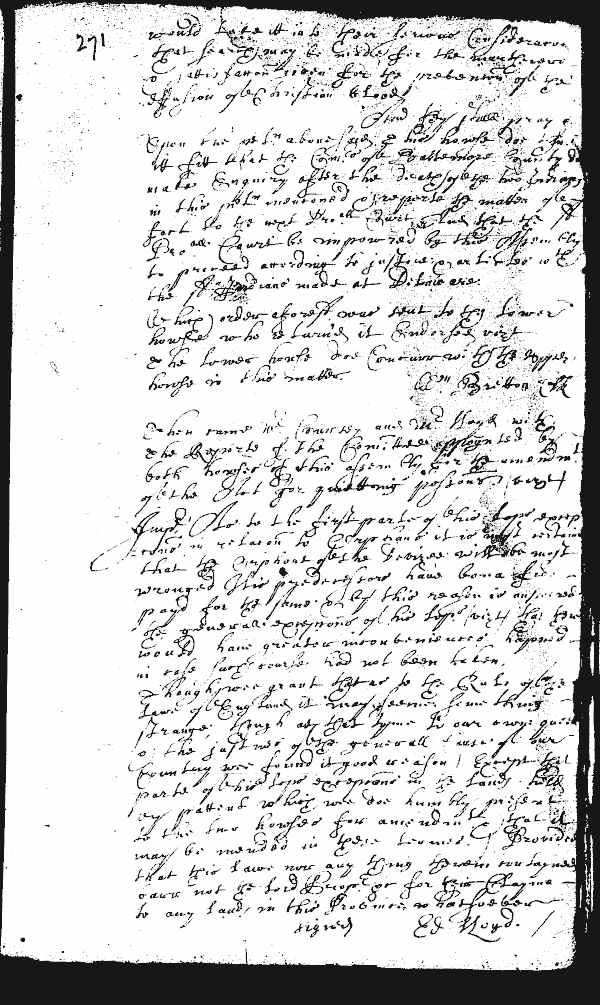 291
would take it into their serious Consideracon
that search may be made for the murtherers
satisfaction given for the prevention of the
effusion of Christian blood
And they shall pray
Upon the petn abovesaid this howse doe
fitt that the Comrs of Baltemore County do
make Enquiry after the death of the two Indians
in this petn mentioned & reporte the matter of
fact to the next Proll Court, And that the sd
Proall Court be impowred by this Assembly
to proceed according to justice & articles with
the sd Indians made at Delaware.
which order aforesd was sent to the Lower
howse who returned it Endorsed vizt
The lower howse doe Concurr with the upper
howse in this matter. Wm Bretton Clk
Then came mr Coursey and mr lloyd with
the Reporte of the Comittee appoynted by
both howses of this assembly for the amendmt
of the Act for quietting possions vizt
Imps As to the first parte of his Lops excep
cons in relacon to Orphans it is most certaine
that the Orphant of the devisee will be most
wronged His predecessors have bona fide
payd for the same & by this reason is answered
the generall excepcons of his Lops vizt that there
would have greater inconveniences hapned
in case such course had not been taken.
Though wee grant that as to the Rule of the
lawe of England it may seeme something
strange though at that tyme to our owne
& the justnes of the generall cause of our
Country wee found it good reason Except that
parte of his Lops excepcons in the lands held
by pattent which wee doe humbly present
to the two howses for amendmt that it
may be mended in these termes. Provided
that this lawe nor any thing therein contayned
barr not the Lord Proprs for their Clayme
to any land in this Province whatsoever
signed Ed lloyd.